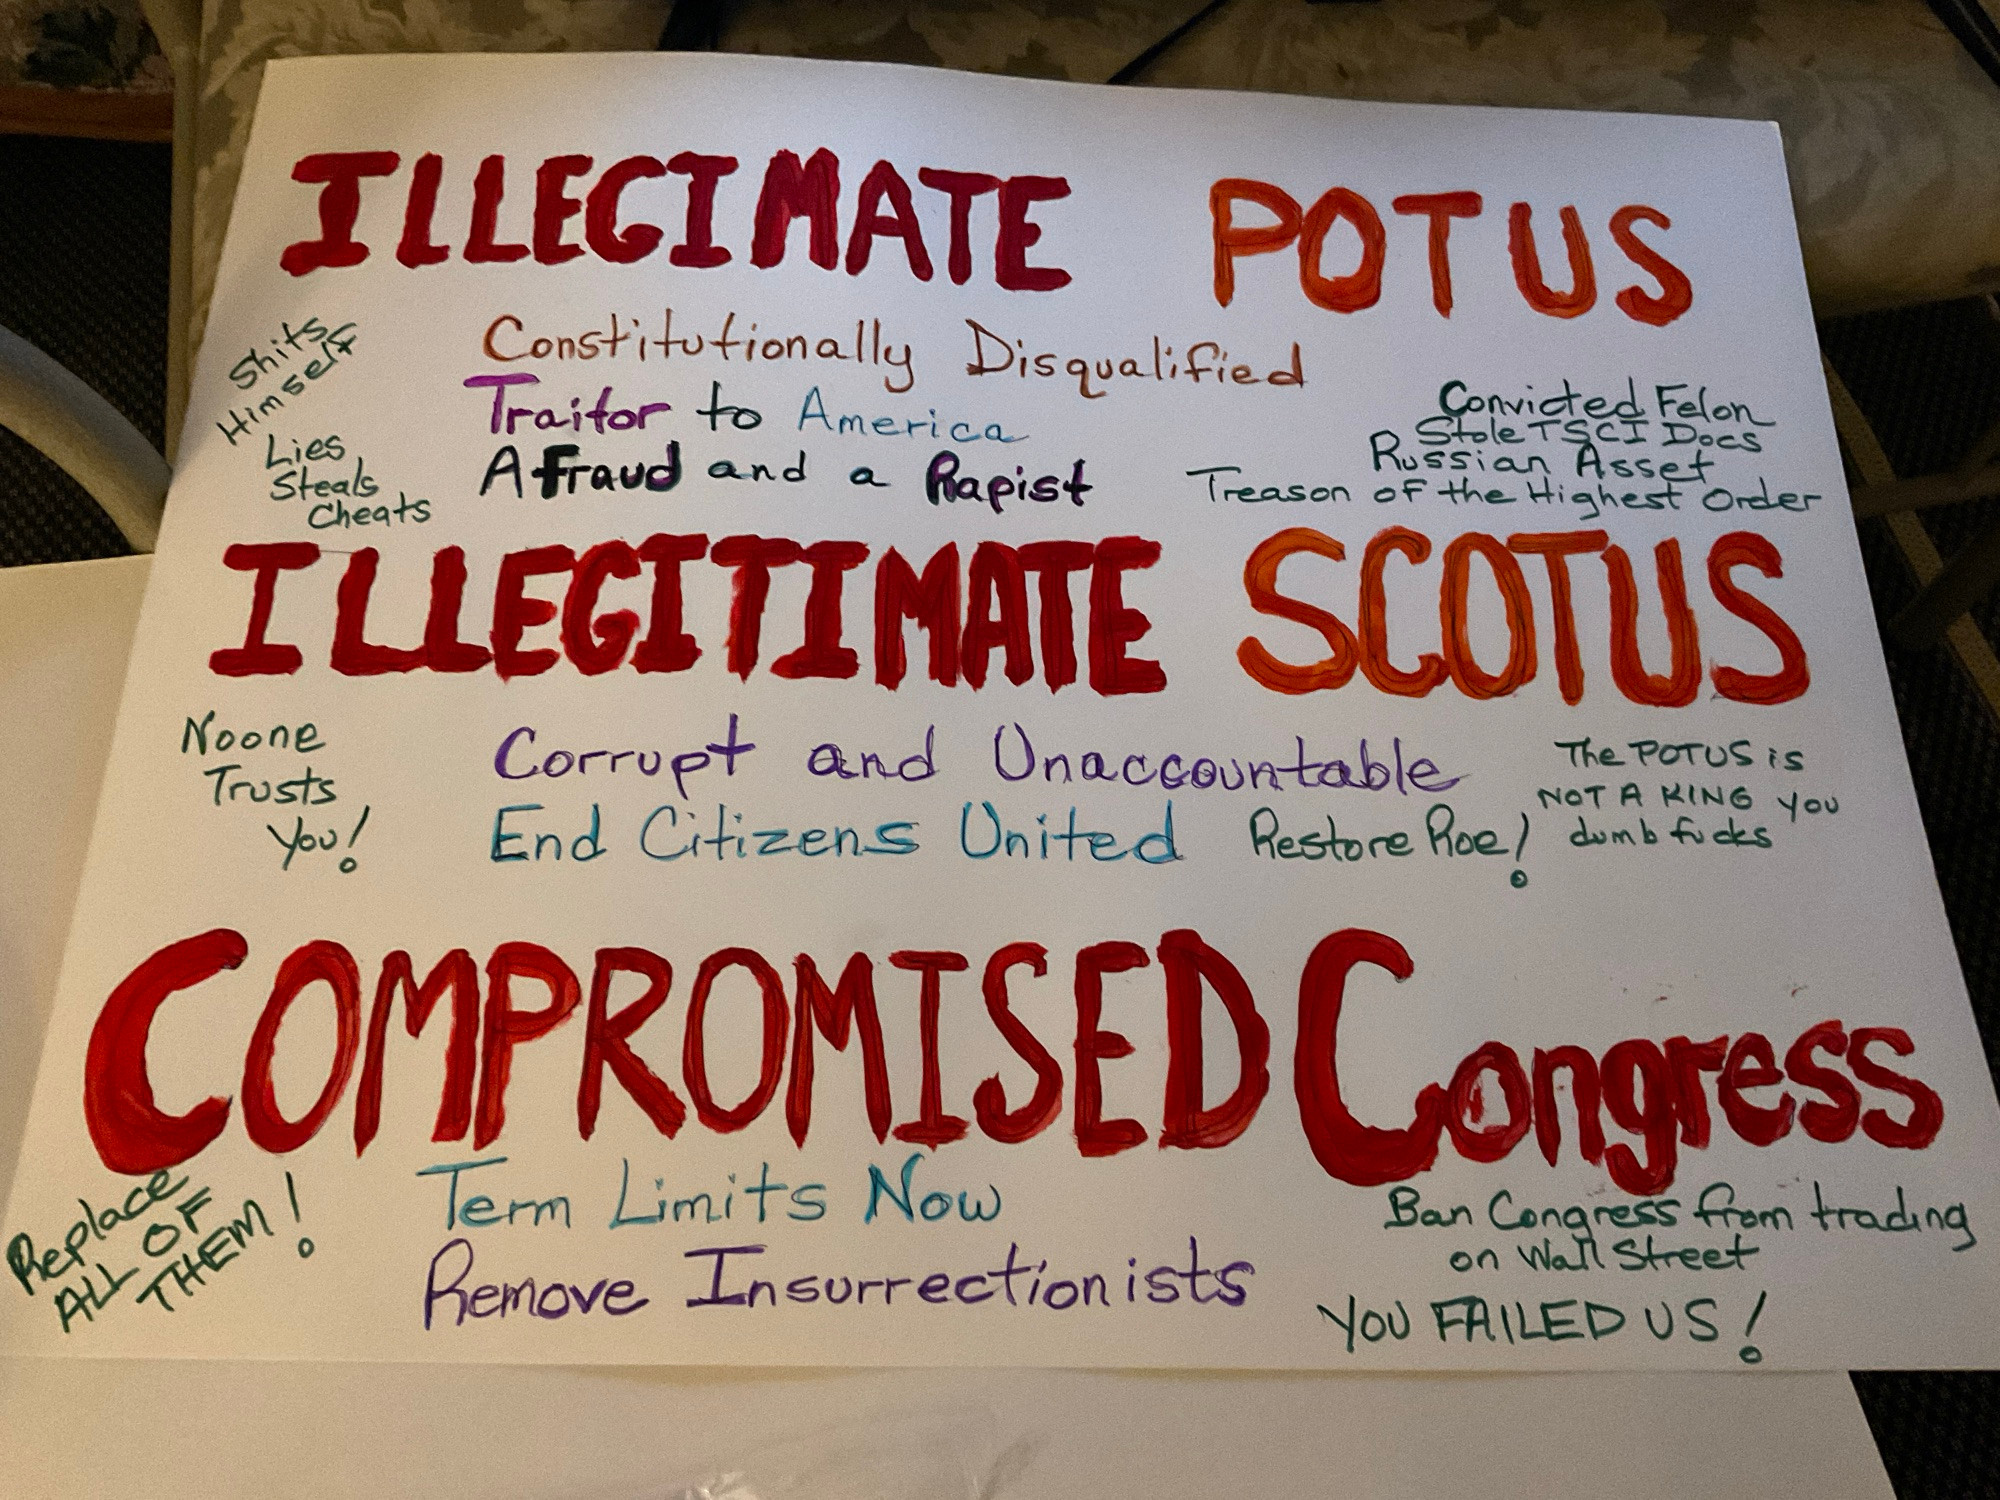 ILLEGIMATE POTUS
Shits
Himself
Lies
Steals
Cheats
Constitutionally Disqualified
Traitor to America
A fraud and a Rapist
Convicted Felon
Stole TSCI Docs
Russian Asset
Treason of the Highest Order
ILLEGITIMATE SCOTUS
Noone
Trusts
You!
Corrupt and Unaccountable
End Citizens United Restore Roe!
The POTUS is
NOT A KING you
dumb fucks
COMPROMISED Congress
Replace
ALL OF
THEM!
Term Limits Now
Remove Insurrectionists
Ban Congress from trading
on Wall Street
YOU FAILED US!